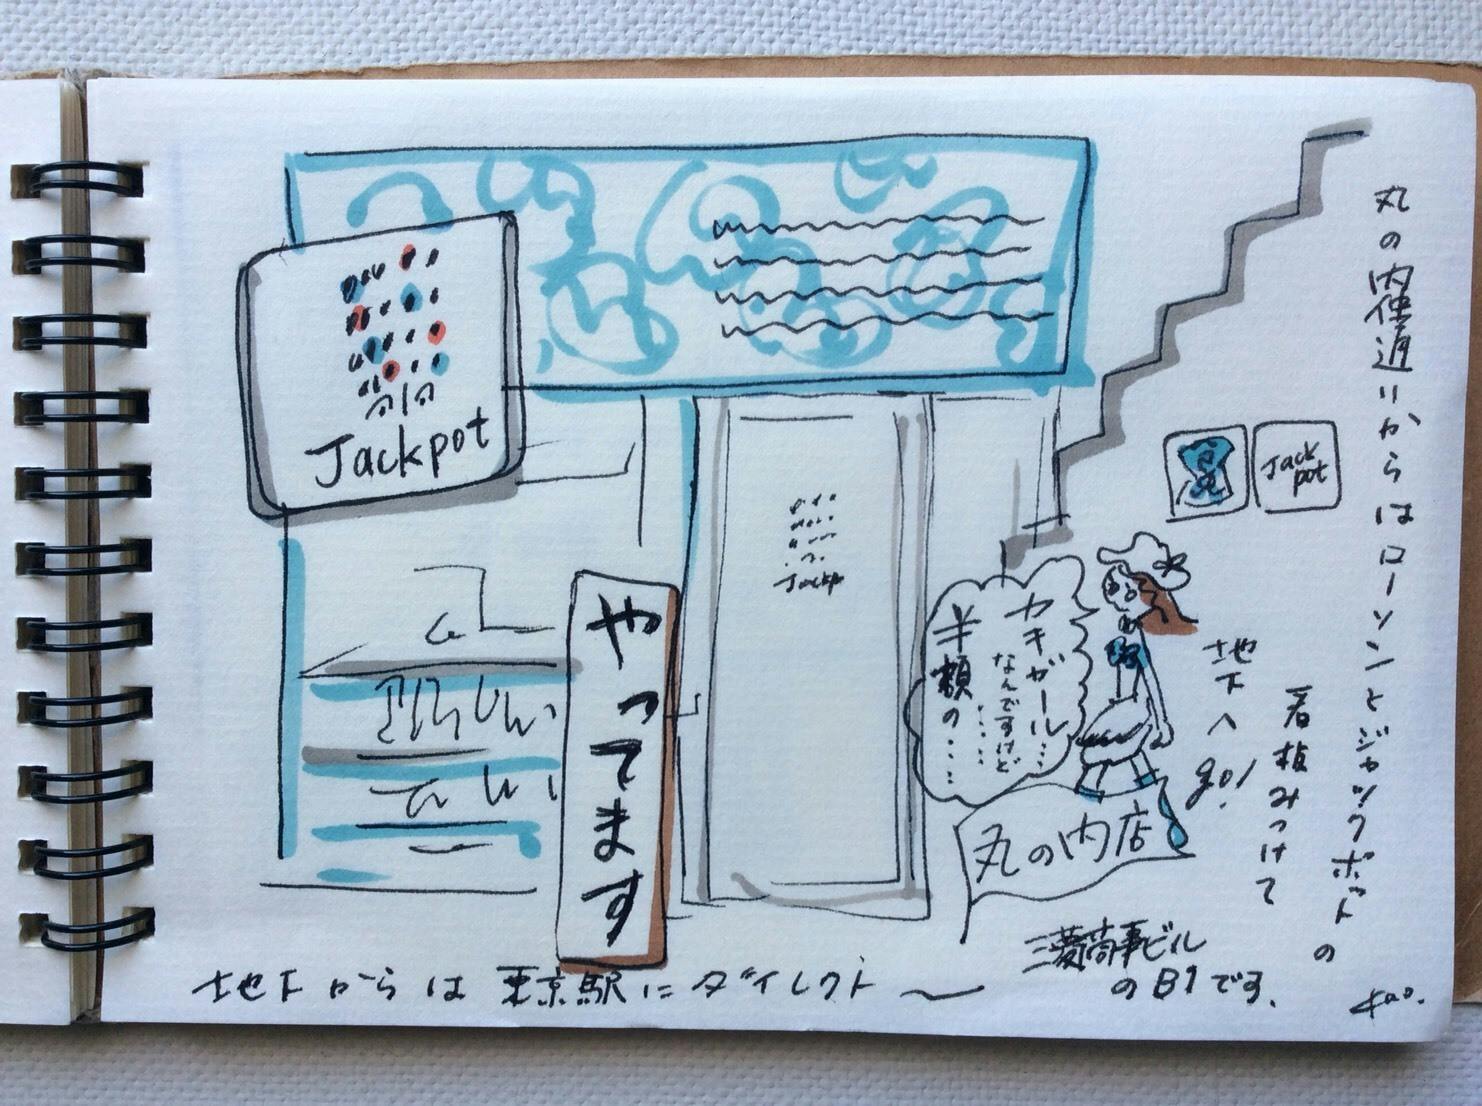 Jackpot
Jackp
やってます
カキガール…
なんですけど……
半額の……
丸の内店
Jack
pot
丸の内仲通りからはローソンとジャックポットの
看板みつけて
地下へ
go!
三菱商事ビル
のB1です.
地下からは東京駅にダイレクト〜